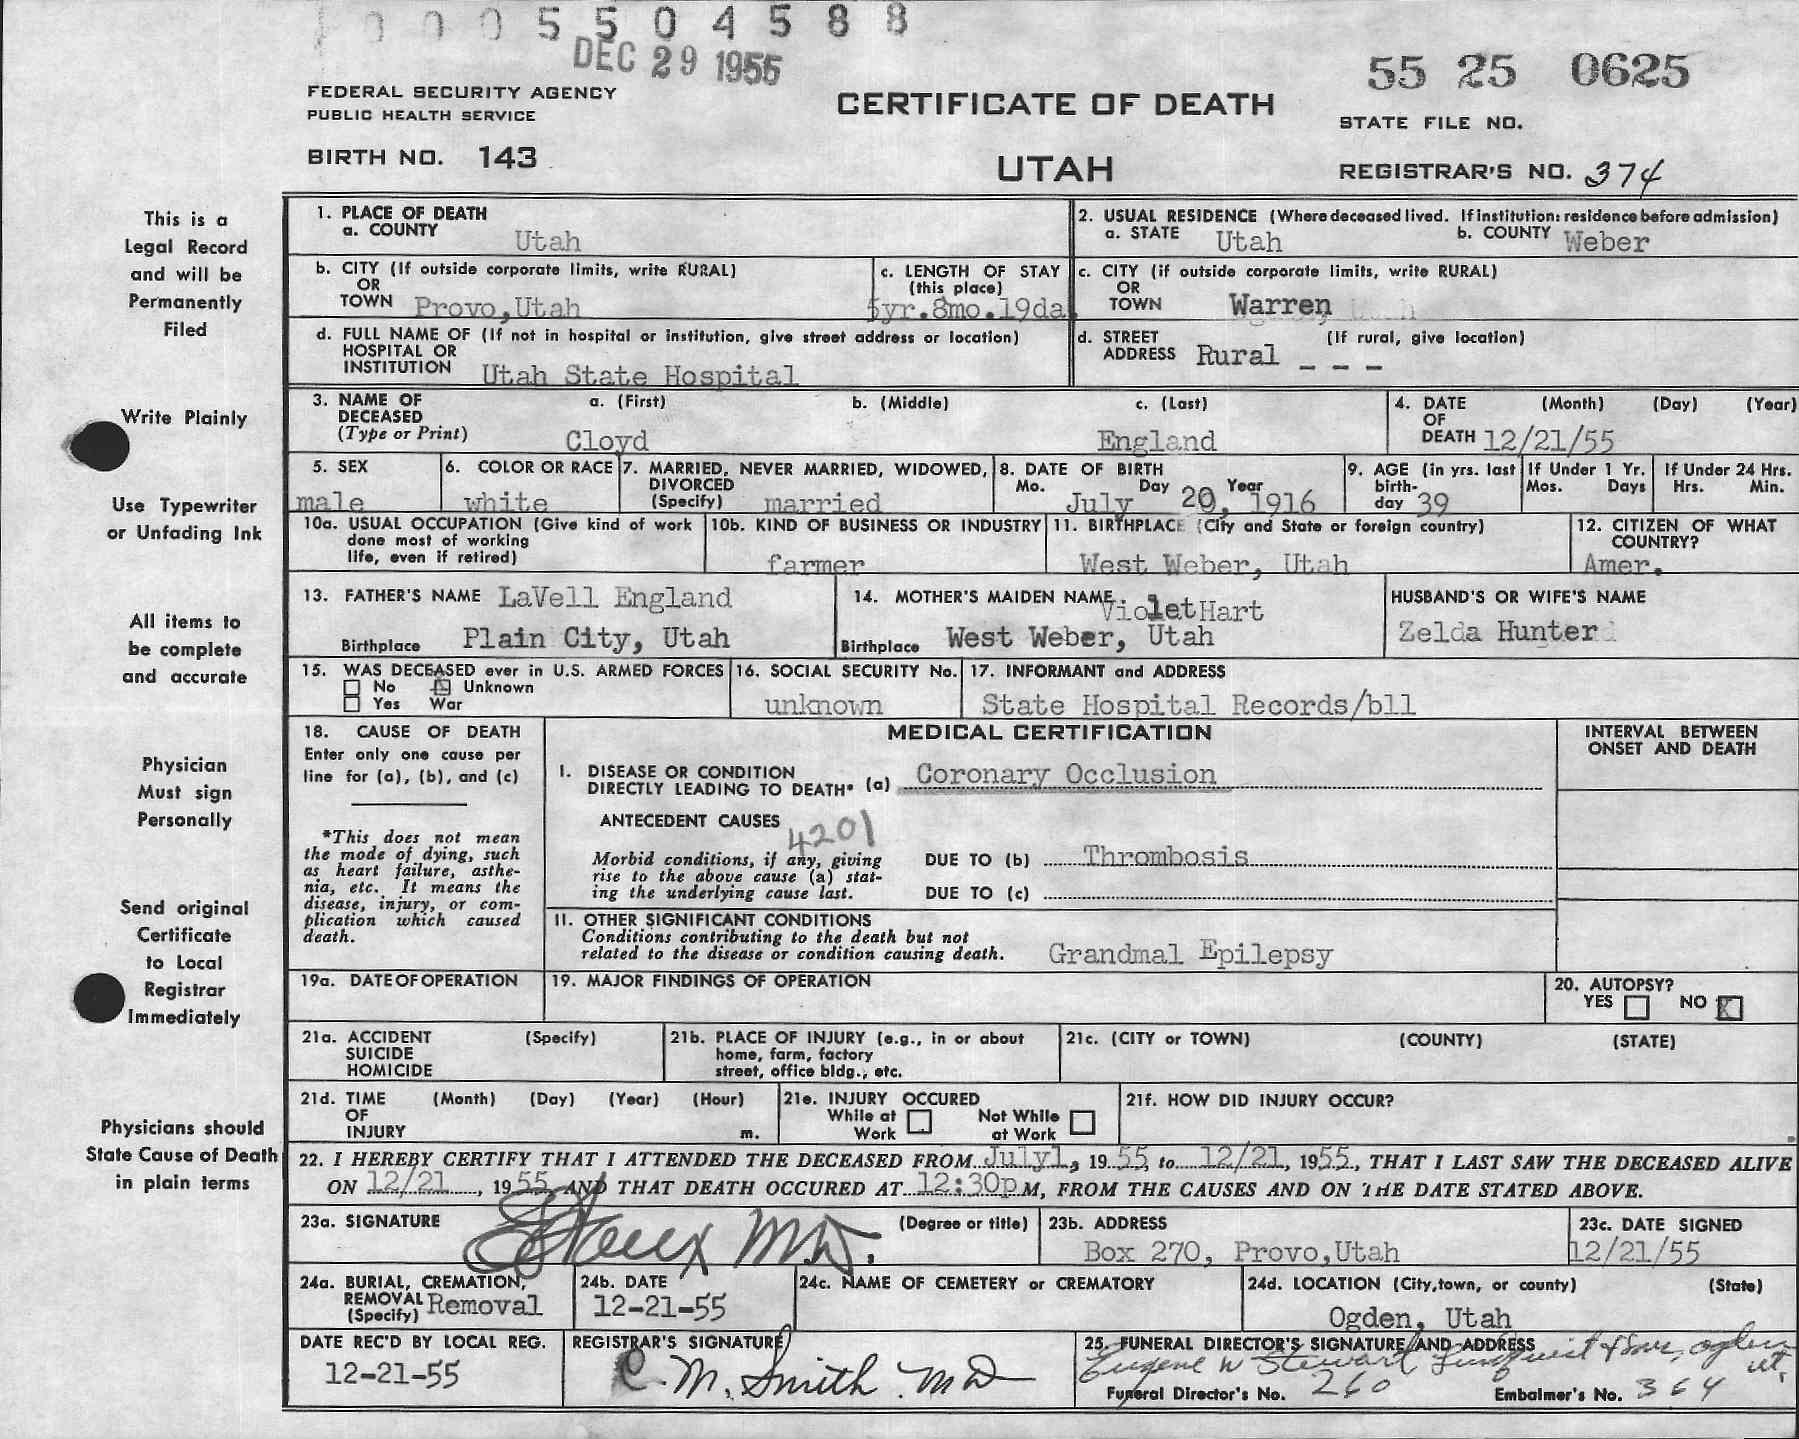 0 0 0 5 5 0 4 5 8 8
DEC 29 1955
55 25 0625
FEDERAL SECURITY AGENCY
PUBLIC HEALTH SERVICE
CERTIFICATE OF DEATH
STATE FILE NO.
BIRTH NO. 143
UTAH
REGISTRAR'S NO. 374
This is a
Legal Record
and will be
Permanently
Filed
Write Plainly
Use Typewriter
or Unfading Ink
All items to
be complete
and accurate
Physician
Must sign
Personally
Send original
Certificate
to Local
Registrar
Immediately
Physicians should
State Cause of Death
in plain terms
1. PLACE OF DEATH
a. COUNTY Utah
2. USUAL RESIDENCE (Where deceased lived. If institution: residence before admission)
a. STATE Utah b. COUNTY Weber
b. CITY (If outside corporate limits, write RURAL)
OR
TOWN Provo,Utah
c. LENGTH OF STAY
(this place)
5yr.8mo.19da
c. CITY (if outside corporate limits, write RURAL)
OR
TOWN Warren
d. FULL NAME OF (If not in hospital or institution, give street address or location)
HOSPITAL OR
INSTITUTION Utah State Hospital
d. STREET (If rural, give location)
ADDRESS Rural - - -
3. NAME OF a. (First) b. (Middle) c. (Last)
DECEASED
(Type or Print) Cloyd England
4. DATE (Month) (Day) (Year)
OF
DEATH 12/21/55
5. SEX
male
6. COLOR OR RACE
white
7. MARRIED, NEVER MARRIED, WIDOWED,
DIVORCED
(Specify) married
8. DATE OF BIRTH
Mo. Day Year
July 20, 1916
9. AGE (in yrs. last
birth-
day 39
If Under 1 Yr.
Mos. Days
If Under 24 Hrs.
Hrs. Min.
10a. USUAL OCCUPATION (Give kind of work
done most of working
life, even if retired)
10b. KIND OF BUSINESS OR INDUSTRY
farmer
11. BIRTHPLACE (City and State or foreign country)
West Weber, Utah
12. CITIZEN OF WHAT
COUNTRY?
Amer.
13. FATHER'S NAME LaVell England
Birthplace Plain City, Utah
14. MOTHER'S MAIDEN NAME Violet Hart
Birthplace West Weber, Utah
HUSBAND'S OR WIFE'S NAME
Zelda Hunter
15. WAS DECEASED ever in U.S. ARMED FORCES
No Unknown
Yes War
16. SOCIAL SECURITY No.
unknown
17. INFORMANT and ADDRESS
State Hospital Records/bll
18. CAUSE OF DEATH
Enter only one cause per
line for (a), (b), and (c)
*This does not mean
the mode of dying, such
as heart failure, asthe-
nia, etc. It means the
disease, injury, or com-
plication which caused
death.
MEDICAL CERTIFICATION
INTERVAL BETWEEN
ONSET AND DEATH
I. DISEASE OR CONDITION
DIRECTLY LEADING TO DEATH* (a) Coronary Occlusion
ANTECEDENT CAUSES
4201
Morbid conditions, if any, giving
rise to the above cause (a) stat-
ing the underlying cause last.
DUE TO (b) Thrombosis
DUE TO (c)
II. OTHER SIGNIFICANT CONDITIONS
Conditions contributing to the death but not
related to the disease or condition causing death. Grandmal Epilepsy
19a. DATE OF OPERATION
19. MAJOR FINDINGS OF OPERATION
20. AUTOPSY?
YES NO X
21a. ACCIDENT (Specify)
SUICIDE
HOMICIDE
21b. PLACE OF INJURY (e.g., in or about
home, farm, factory
street, office bldg., etc.
21c. (CITY or TOWN) (COUNTY) (STATE)
21d. TIME (Month) (Day) (Year) (Hour)
OF
INJURY m.
21e. INJURY OCCURED
While at Work
Not While at Work
21f. HOW DID INJURY OCCUR?
22. I HEREBY CERTIFY THAT I ATTENDED THE DECEASED FROM July 1, 19 55, to 12/21, 1955, THAT I LAST SAW THE DECEASED ALIVE
ON 12/21, 19 55 AND THAT DEATH OCCURED AT 12:30p M, FROM THE CAUSES AND ON THE DATE STATED ABOVE.
23a. SIGNATURE M.D. (Degree or title)
23b. ADDRESS
Box 270, Provo,Utah
23c. DATE SIGNED
12/21/55
24a. BURIAL, CREMATION,
REMOVAL Removal
(Specify)
24b. DATE
12-21-55
24c. NAME OF CEMETERY or CREMATORY
24d. LOCATION (City,town, or county) (State)
Ogden, Utah
DATE REC'D BY LOCAL REG.
12-21-55
REGISTRAR'S SIGNATURE
C. M. Smith MD
25. FUNERAL DIRECTOR'S SIGNATURE AND ADDRESS
Eugene W Stewart Lindquist & Sons, Ogden
ut.
Funeral Director's No. 260 Embalmer's No. 364